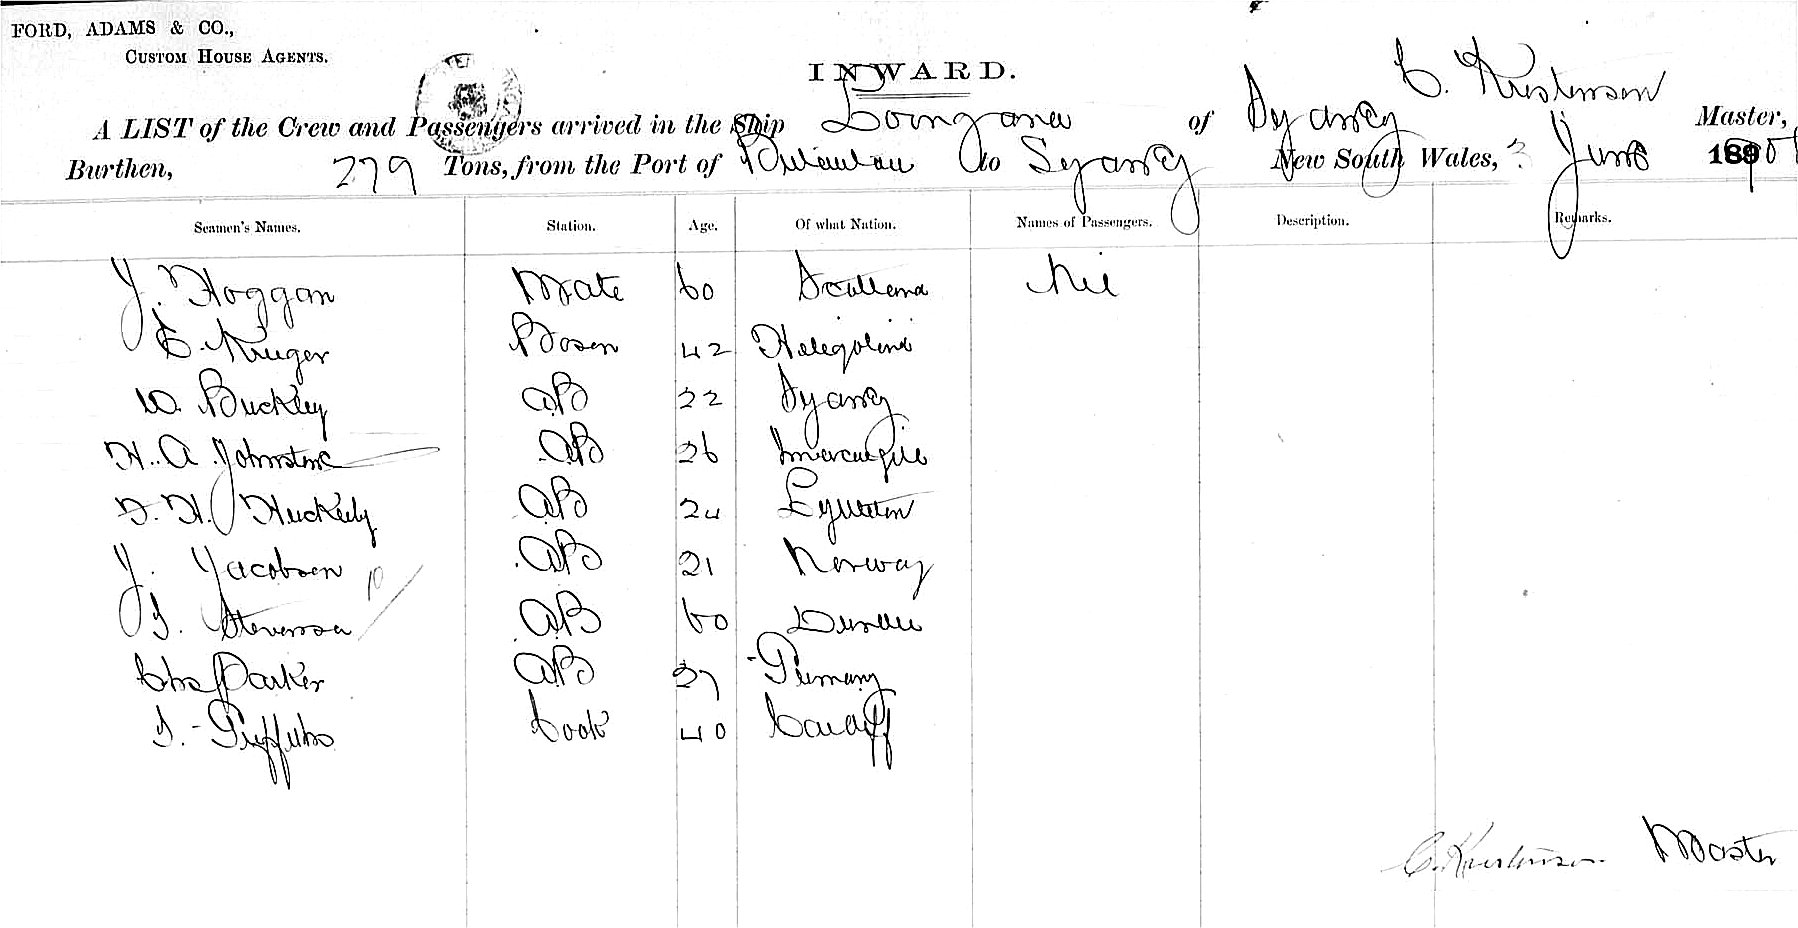 FORD, ADAMS & CO.,
CUSTOM HOUSE AGENTS.
INWARD.
C. Kristenson
A LIST of the Crew and Passengers arrived in the Ship Loongana of Sydney Master,
Burthen, 279 Tons, from the Port of to Sydney New South Wales, 3 June 1901
Seamen's Names. Station. Age. Of what Nation. Names of Passengers. Description. Remarks.
J. Hoggan Mate 60 Scotland Nil
C. Kruger Bosen 42 Heligoland
W. Buckley AB 22 Sydney
H. A. Johnstone AB 26 Invercargill
F. H. Huckely AB 24 Lyttelton
J. Jacobsen AB 21 Norway
10
T. Stevenson AB 60 Dundee
Chas Parker AB 27 Germany
T. Griffiths Cook 40 Cardiff
C. Kristenson Master